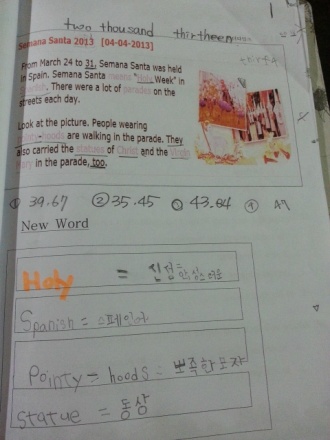 two thousand thirtheen
Semana Santa 2013 [04-04-2013]
From March 24 to 31, Semana Santa was held
in Spain. Semana Santa means "Holy Week" in
Spanish. There were a lot of parades on the
streets each day.
Look at the picture. People wearing
pointy hoods are walking in the parade. They
also carried the statues of Christ and the Virgin
Mary in the parade, too.
① 39.67 ② 35.45 ③ 43.04 ④ 49
New Word
Holy =
Spanish = 스페인어
Pointy = hoods = 뾰족한모자
Statue = 동상